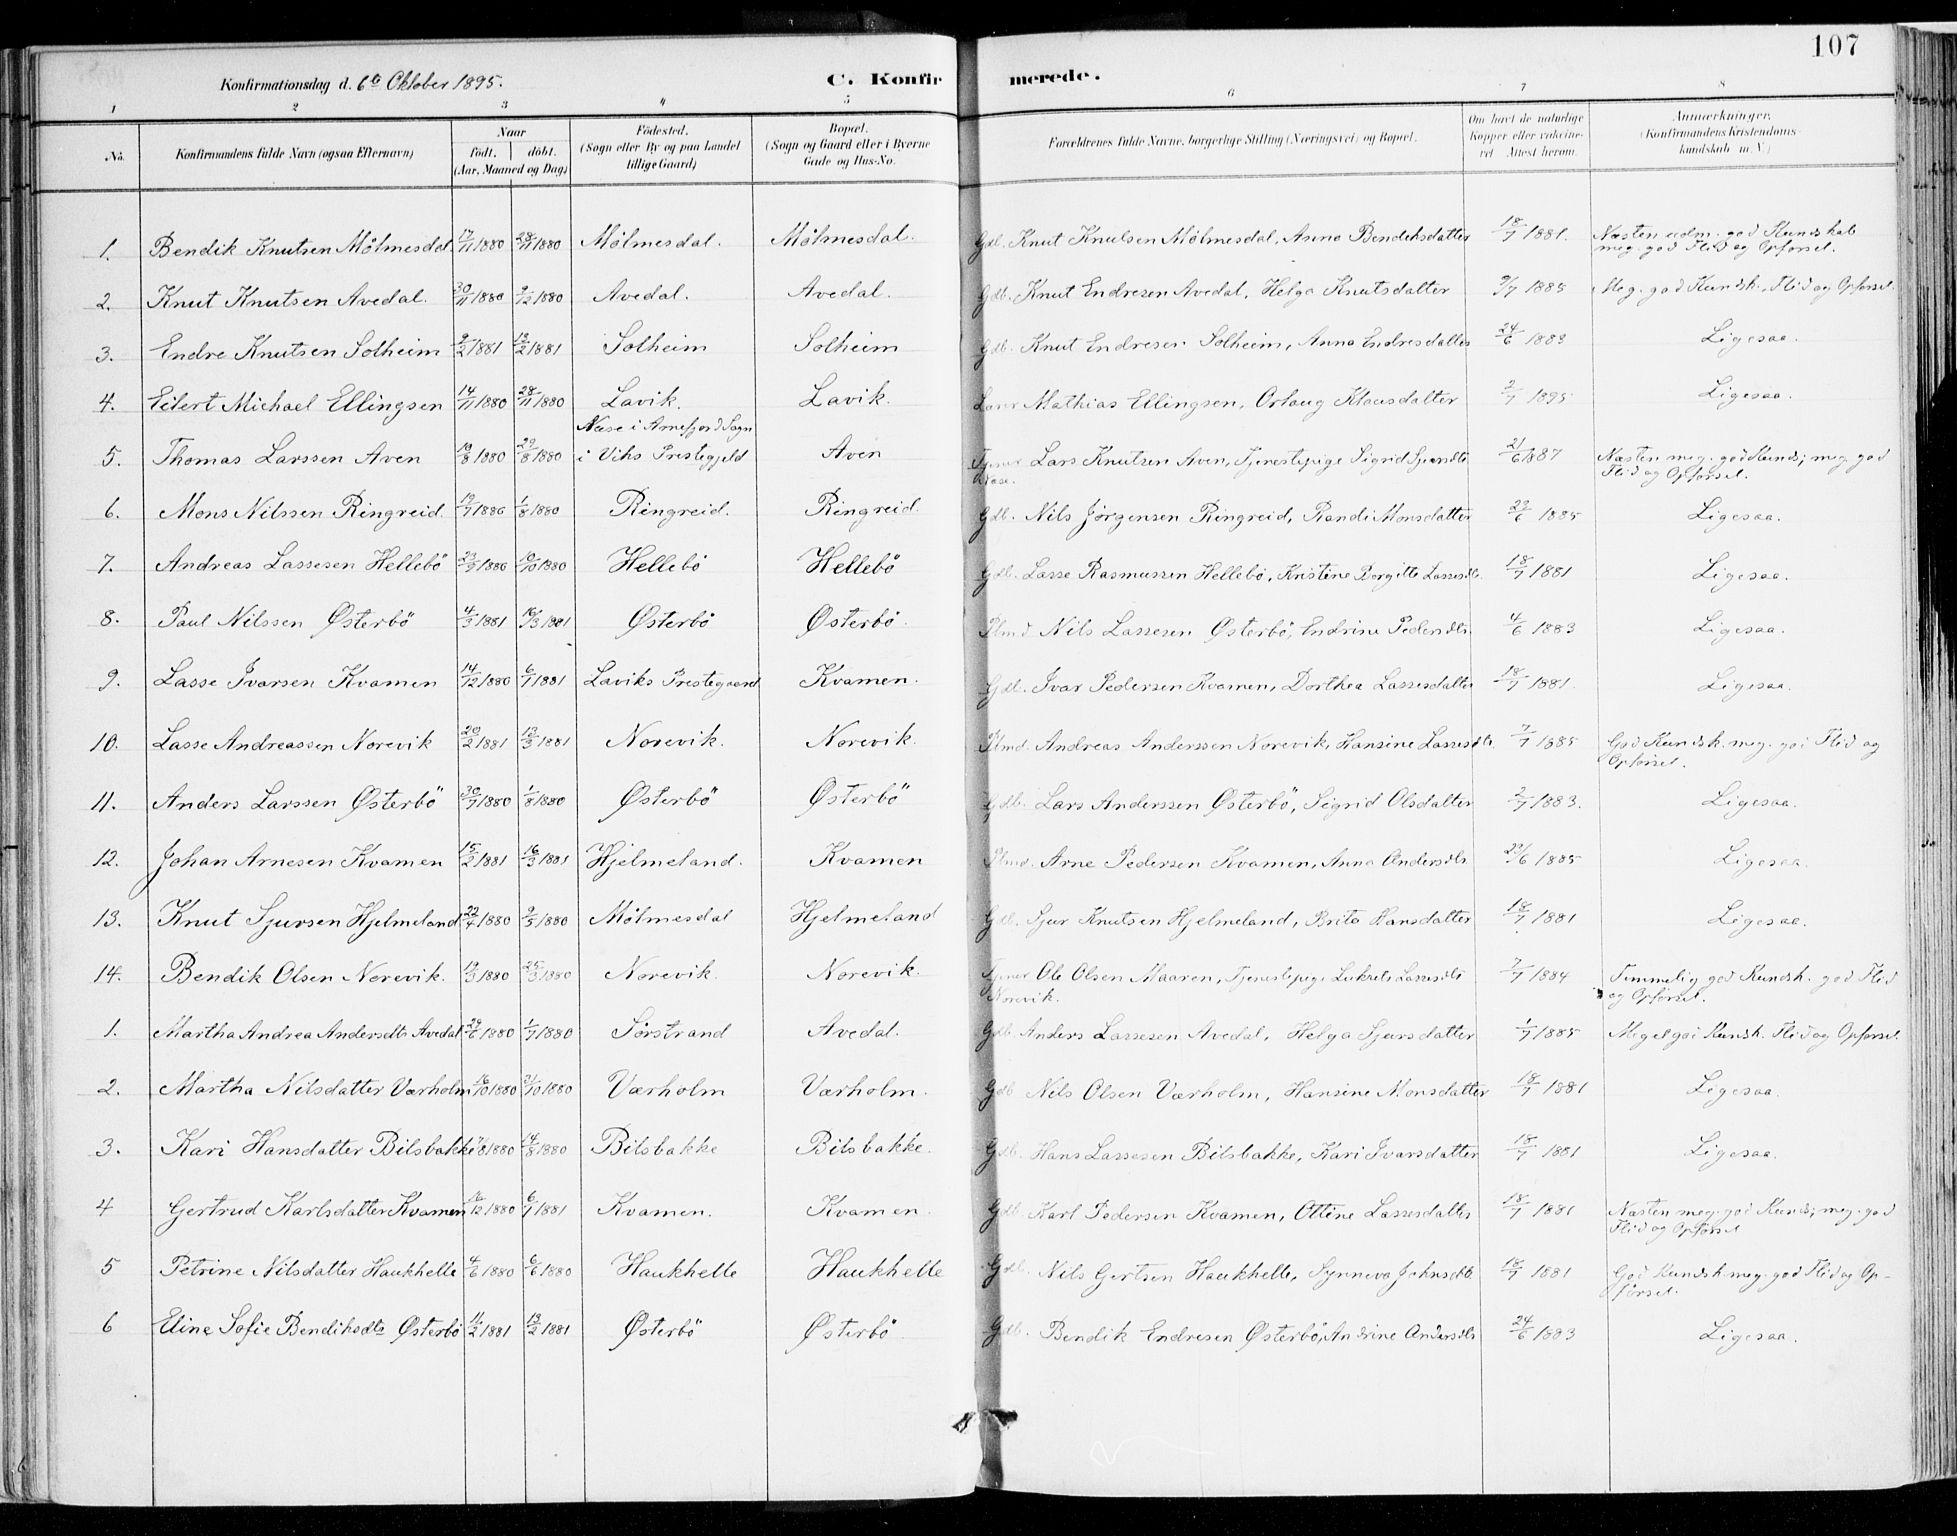 107
Konfirmationsdag d. 6te Oktober 1895. C. Konfirmerede.
1 2 3 4 5 6 7 8
No. Konfirmandens fulde Navn (ogsaa Efternavn) Naar født, døbt. (Aar, Maaned og Dag) Födested. (Sogn eller By og paa Landet tillige Gaard) Bopæl. (Sogn og Gaard eller i Byerne Gade og Hus-No. Forældrenes fulde Navne, borgerlige Stilling (Næringsvei) og Bopæl. Om havt de naturlige Kopper eller vaccineret Attest herom. Anmærkninger. (Konfirmandens Kristendomskundskab m. V.)
1. Bendik Knutsen Mölmesdal 17/11 1880 28/11 1880 Mölmesdal. Mölmesdal. Gdb. Knut Knutsen Mölmesdal, Anna Bendiksdatter 18/7 1881. Næsten udm. god Kundskab meg. god Flid og Opførsel.
2. Knut Knutsen Avedal. 30/11 1880 9/12 1880 Avedal. Avedal. Gdb. Knut Endresen Avedal, Helga Knutsdatter 9/7 1885 Meg. god Kundsk., Flid og Opførsel.
3. Endre Knutsen Solheim 9/2 1881 13/2 1881 Solheim Solheim Gdb. Knut Endresen Solheim, Anna Endresdatter 24/6 1883 Ligesaa.
4. Eilert Michael Ellingsen 14/11 1880 28/11 1880 Lavik. Lavik. Mathias Ellingsen, Orlaug Klausdatter 2/7 1895 Ligesaa.
5. Thomas Larssen Aven 19/8 1880 29/8 1880 Næse i Arnefjord Sogn i Viks Prestegjeld Aven Tjener Lars Knutsen Aven, Tjenestepige Sigrid Næse. 21/6 1887 Næsten meg. god Kunds; meg. god Flid og Opførsel.
6. Mons Nilssen Ringreid. 19/7 1880 1/8 1880 Ringreid. Ringreid. Gdb. Nils Jørgensen Ringreid, Randi Monsdatter 29/6 1885 Ligesaa.
7. Andreas Lassesen Hellebö 23/9 1880 10/10 1880 Hellebö Hellebö Gdb. Lasse Rasmussen Hellebö, Kristine Borgitte Lassesdt. 18/7 1881 Ligesaa.
8. Paul Nilssen Østerbö 4/3 1881 16/3 1881 Østerbö Østerbö. Plmd Nils Lassesen Østerbö, Endrine Pedersdt. 4/6 1883 Ligesaa.
9. Lasse Ivarsen Kvamen 14/12 1880 6/1 1881 Laviks Prestegaard Kvamen. Gdb. Ivar Pedersen Kvamen, Dorthea Lassesdatter 18/7 1881. Ligesaa.
10. Lasse Andreassen Norevik 20/2 1881 13/3 1881 Norevik. Norevik. Plmd. Andreas Anderssen Norevik, Hansine Lassesdt. 7/7 1885 God Kundsk. meg. god Flid og Opførsel.
11. Anders Larssen Østerbö 30/7 1880 1/8 1880 Østerbö Østerbö Gdb. Lars Anderssen Østerbö, Sigrid Olsdatter 2/7 1883. Ligesaa.
12. Johan Arnesen Kvamen 15/2 1881 16/3 1881 Hjelmeland. Kvamen Plmd. Arne Pedersen Kvamen, Anna Andersdt. 23/6 1885 Ligesaa.
13. Knut Sjursen Hjelmeland 22/4 1880 9/5 1880 Mölmesdal Hjelmeland Gdb. Sjur Knutsen Hjelmeland, Brita Hansdatter 18/7 1881 Ligesaa.
14. Bendik Olsen Norevik. 19/3 1880 25/3 1880 Norevik. Norevik Tjener Ole Olsen Maaren, Tjenestepige Lukrets Lassesdt. Norevik. 7/7 1884 Temmelig god Kundsk. god Flid og Opførsel.
1. Martha Andrea Andersdtr Avedal 29/6 1880 1/7 1880 Sörstrand Avedal. Gdb. Anders Lassesen Avedal, Helga Sjursdatter 1/7 1885 Meget god Kundsk. Flid og Opførsel
2. Martha Nilsdatter Værholm 16/10 1880 31/10 1880 Værholm Værholm. Gdb Nils Olsen Værholm, Hansine Monsdatter 18/7 1881 Ligesaa.
3. Kari Hansdatter Bilsbakke /8 1880 14/8 1880 Bilsbakke Bilsbakke. Gdb. Hans Lassesen Bilsbakke, Kari Ivarsdatter 18/7 1881 Ligesaa.
4 Gertrud Karlsdatter Kvamen 16/12 1880 6/1 1881 Kvamen. Kvamen. Gdb. Karl Pedersen Kvamen, Ottine Lassesdatter 18/7 1881 Næsten meg. god Kunds; meg. god Flid og Opførsel
5 Petrine Nilsdatter Haukhelle 4/6 1880 6/6 1880 Haukhelle Haukhelle Gdb. Nils Gertsen Haukhelle, Synneva Johnsdt. 18/7 1881 God Kundsk. meg. god Flid og Opførsel.
6 Eline Sofie Bendiksdtr Østerbö 11/2 1881 13/2 1881 Østerbö Østerbö Gdb. Bendik Endresen Østerbö, Andrine Andersdt. 24/6 1883 Ligesaa.